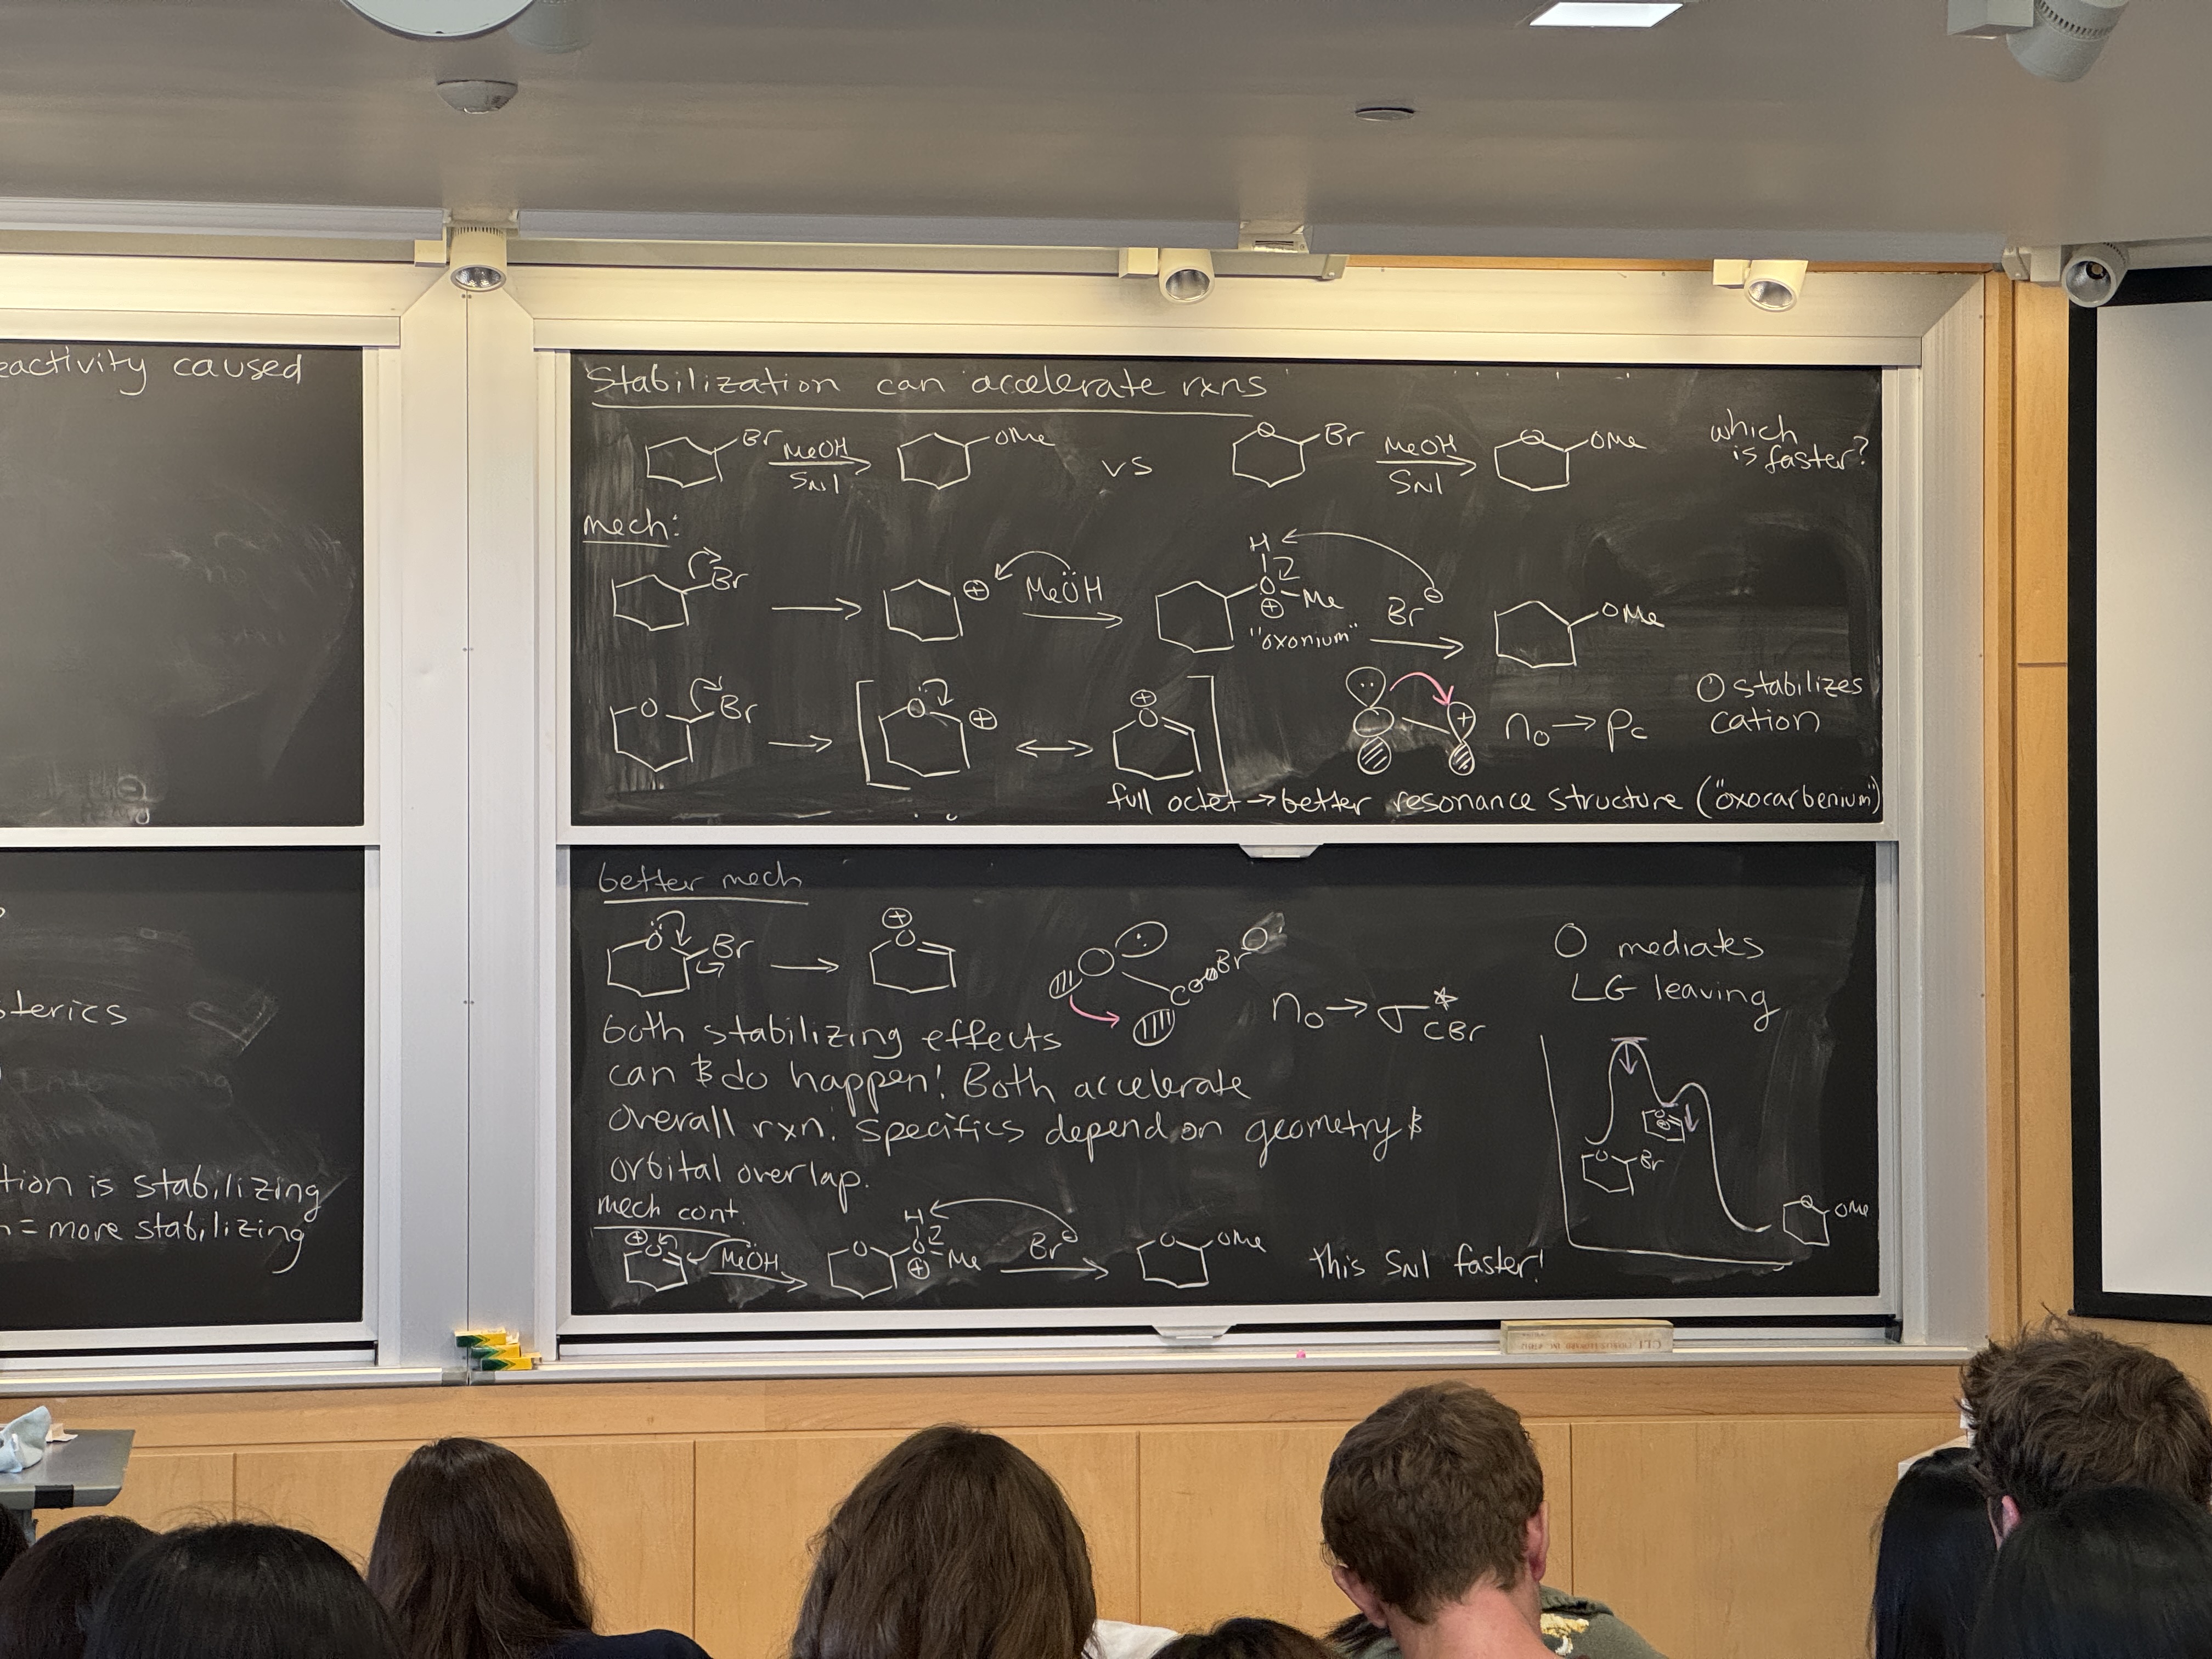 eactivity caused
sterics
tion is stabilizing
n = more stabilizing
Stabilization can accelerate rxns
Br MeOH SN1 OMe vs O Br MeOH SN1 O OMe which is faster?
mech:
Br ⊕ MeÖH H O ⊕ Me "oxonium" Br⊖ OMe
O Br O ⊕ ⊕ O + n_O → p_C O stabilizes cation
full octet → better resonance structure ("oxocarbenium")
better mech
O Br ⊕ O C Br n_O → σ*_CBr O mediates LG leaving
both stabilizing effects
can & do happen! Both accelerate
overall rxn. Specifics depend on geometry &
orbital overlap.
O Br O ⊕ O OMe
mech cont.
⊕ O MeÖH O H O ⊕ Me Br⊖ O OMe this SN1 faster!